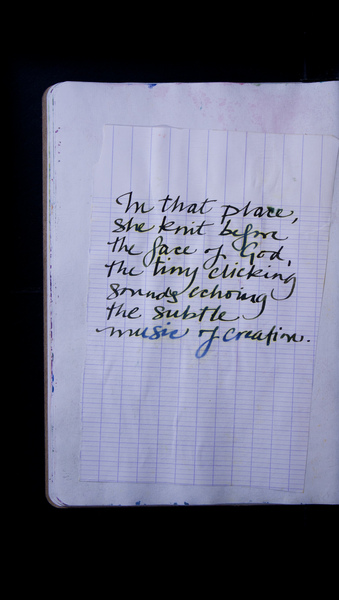 In that place,
she knit before
the face of God,
the tiny clicking
sounds echoing
the subtle
music of creation.